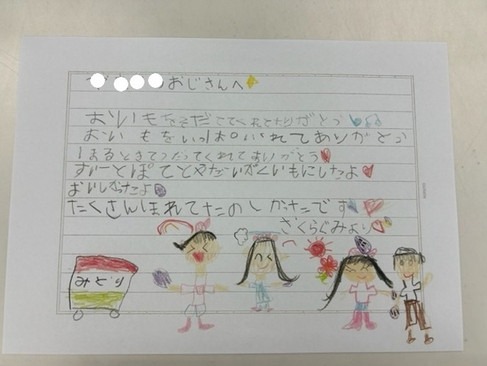 おじさんへ
おいもをそだててくれてありがとう
おいもをいっぱいくれてありがとう
ほるときてつだってくれてありがとう
すいーとぽてとやだいがくいもにしたよ
おいしかったよ
たくさんほれてたのしかったです
さくらぐみより
みどり